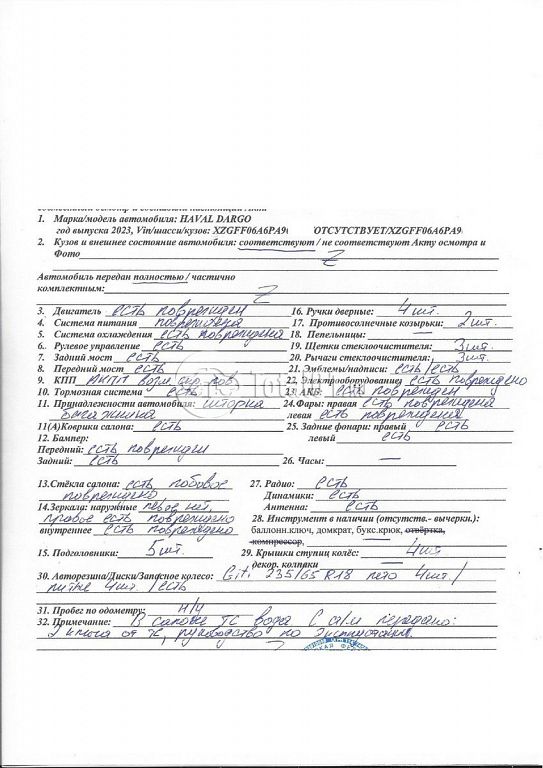 1. Марка/модель автомобиля: HAVAL DARGO
год выпуска 2023, Vin/шасси/кузов: XZGFF06A6PA9 ОТСУТСТВУЕТ/XZGFF06A6PA9
2. Кузов и внешнее состояние автомобиля: соответствуют / не соответствуют Акту осмотра и
Фото Z
Автомобиль передан полностью / частично
комплектным: Z
3. Двигатель есть поврежден 16. Ручки дверные: 4 шт.
4. Система питания повреждена 17. Противосолнечные козырьки: 2 шт.
5. Система охлаждения есть повреждена 18. Пепельницы: —
6. Рулевое управление есть 19. Щетки стеклоочистителя: 3 шт.
7. Задний мост есть 20. Рычаги стеклоочистителя: 3 шт.
8. Передний мост есть 21. Эмблемы/надписи: есть/есть
9. КПП АКПП 22. Электрооборудование есть повреждено
10. Тормозная система есть 23. АКБ: есть поврежден
11. Принадлежности автомобиля: шторка 24. Фары: правая есть повреждена
багажника левая есть повреждена
11(А)Коврики салона: есть 25. Задние фонари: правый есть
12. Бампер: левый есть
Передний: есть поврежден
Задний: есть 26. Часы: —
13.Стёкла салона: есть лобовое 27. Радио: есть
повреждено Динамики: есть
14.Зеркала: наружные левое нет Антенна: есть
правое есть повреждено 28. Инструмент в наличии (отсутств.- вычеркн.):
внутреннее есть повреждено баллонн.ключ, домкрат, букс.крюк, отвёртка,
компрессор, —
15. Подголовники: 5 шт. 29. Крышки ступиц колёс: 4 шт
декор. колпаки —
30. Авторезина/Диски/Запасное колесо: Giti 235/65 R18 лето 4 шт./
литые 4 шт. / есть
31. Пробег по одометру: н/ч
32. Примечание: В салоне ТС вода С а/м передано:
2 ключа от ТС, руководство по эксплуатации.